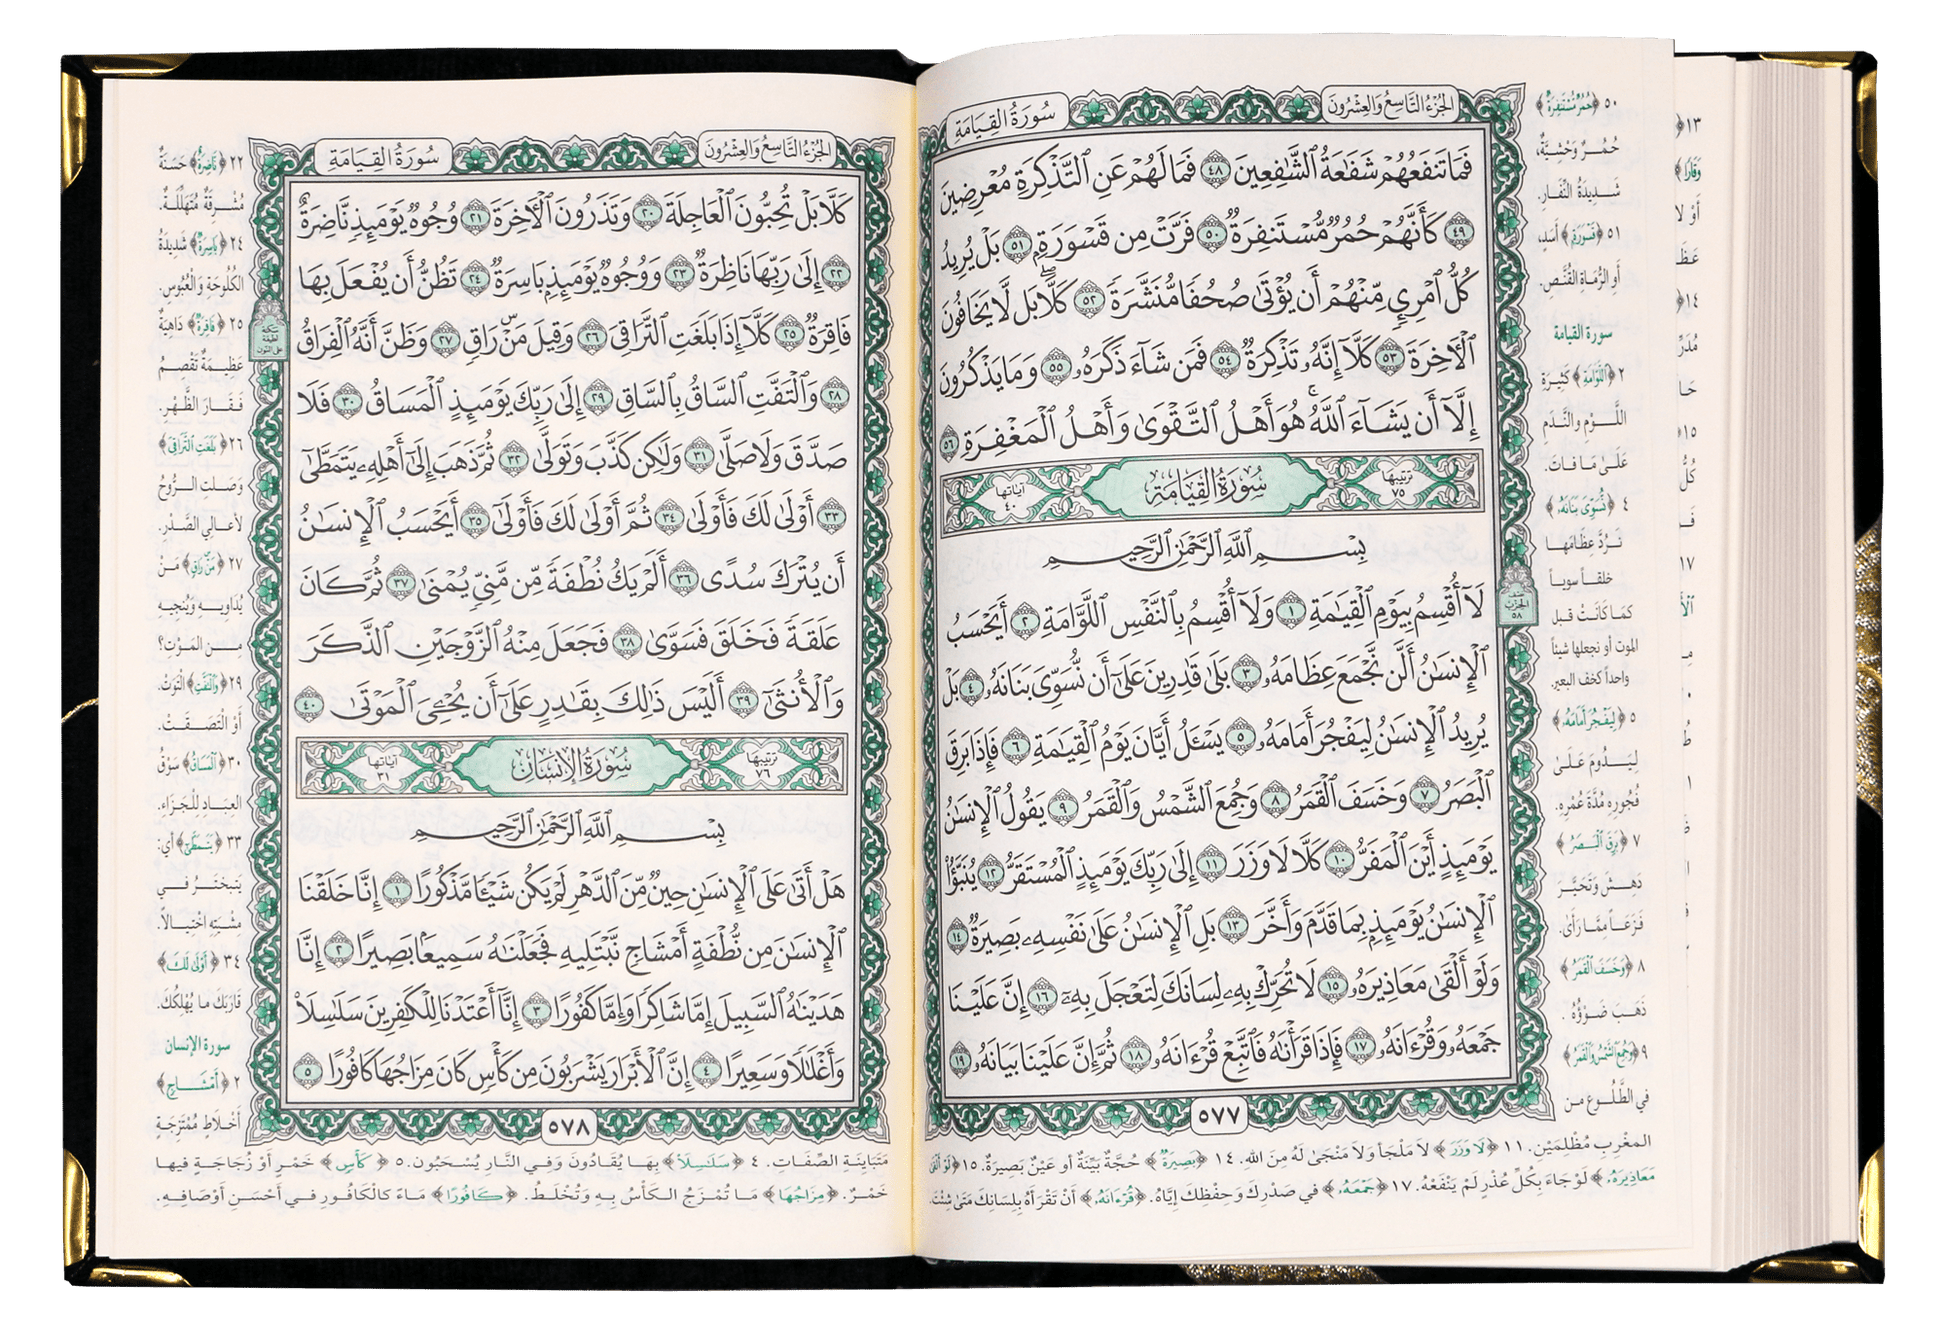 سُورَةُ القِيَامَةِ
الجُزْءُ التَّاسِعُ وَالعِشْرُونَ
فَمَا تَنفَعُهُمْ شَفَٰعَةُ ٱلشَّٰفِعِينَ ٤٨ فَمَا لَهُمْ عَنِ ٱلتَّذْكِرَةِ مُعْرِضِينَ
٤٩ كَأَنَّهُمْ حُمُرٌ مُّسْتَنفِرَةٌ ٥٠ فَرَّتْ مِن قَسْوَرَةٍ ٥١ بَلْ يُرِيدُ
كُلُّ ٱمْرِئٍ مِّنْهُمْ أَن يُؤْتَىٰ صُحُفًا مُّنَشَّرَةً ٥٢ كَلَّا ۖ بَل لَّا يَخَافُونَ
ٱلْأَخِرَةَ ٥٣ كَلَّآ إِنَّهُۥ تَذْكِرَةٌ ٥٤ فَمَن شَآءَ ذَكَرَهُۥ ٥٥ وَمَا يَذْكُرُونَ
إِلَّآ أَن يَشَآءَ ٱللَّهُ ۚ هُوَ أَهْلُ ٱلتَّقْوَىٰ وَأَهْلُ ٱلْمَغْفِرَةِ ٥٦
ترتيبها ٧٥ سُورَةُ القِيَامَةِ آياتها ٤٠
بِسْمِ ٱللَّهِ ٱلرَّحْمَٰنِ ٱلرَّحِيمِ
لَآ أُقْسِمُ بِيَوْمِ ٱلْقِيَٰمَةِ ١ وَلَآ أُقْسِمُ بِٱلنَّفْسِ ٱللَّوَّامَةِ ٢ أَيَحْسَبُ
ٱلْإِنسَٰنُ أَلَّن نَّجْمَعَ عِظَامَهُۥ ٣ بَلَىٰ قَٰدِرِينَ عَلَىٰٓ أَن نُّسَوِّىَ بَنَانَهُۥ ٤ بَلْ
يُرِيدُ ٱلْإِنسَٰنُ لِيَفْجُرَ أَمَامَهُۥ ٥ يَسْـَٔلُ أَيَّانَ يَوْمُ ٱلْقِيَٰمَةِ ٦ فَإِذَا بَرِقَ
ٱلْبَصَرُ ٧ وَخَسَفَ ٱلْقَمَرُ ٨ وَجُمِعَ ٱلشَّمْسُ وَٱلْقَمَرُ ٩ يَقُولُ ٱلْإِنسَٰنُ
يَوْمَئِذٍ أَيْنَ ٱلْمَفَرُّ ١٠ كَلَّا لَا وَزَرَ ١١ إِلَىٰ رَبِّكَ يَوْمَئِذٍ ٱلْمُسْتَقَرُّ ١٢ يُنَبَّؤُا۟
ٱلْإِنسَٰنُ يَوْمَئِذٍۭ بِمَا قَدَّمَ وَأَخَّرَ ١٣ بَلِ ٱلْإِنسَٰنُ عَلَىٰ نَفْسِهِۦ بَصِيرَةٌ ١٤
وَلَوْ أَلْقَىٰ مَعَاذِيرَهُۥ ١٥ لَا تُحَرِّكْ بِهِۦ لِسَانَكَ لِتَعْجَلَ بِهِۦٓ ١٦ إِنَّ عَلَيْنَا
جَمْعَهُۥ وَقُرْءَانَهُۥ ١٧ فَإِذَا قَرَأْنَٰهُ فَٱتَّبِعْ قُرْءَانَهُۥ ١٨ ثُمَّ إِنَّ عَلَيْنَا بَيَانَهُۥ ١٩
٥٧٧
نصف
الحزب
٥٨
٥٠ ﴿حُمُرٌ مُّسْتَنفِرَةٌ﴾
حُمُرٌ وَحْشِيَّةٌ،
شَدِيدَةُ النِّفَارِ.
٥١ ﴿قَسْوَرَةٍ﴾ أَسَدٍ،
أَوِ الرُّمَاةِ القُنَّصِ.
سورة القيامة
٢ ﴿ٱللَّوَّامَةِ﴾ كَثِيرَةِ
اللَّوْمِ وَالنَّدَمِ
عَلَىٰ مَا فَاتَ.
٤ ﴿نُّسَوِّىَ بَنَانَهُۥ﴾
نَرُدَّ عِظَامَهَا
خلقاً سوياً
كَمَا كَانَتْ قبل
الموت أو نجعلها شيئاً
واحداً كخف البعير.
٥ ﴿لِيَفْجُرَ أَمَامَهُۥ﴾
لِيَدُومَ عَلَىٰ
فُجُورِهِ مُدَّةَ عُمُرِهِ.
٧ ﴿بَرِقَ ٱلْبَصَرُ﴾
دَهِشَ وَتَحَيَّرَ
فَزَعَاً مِمَّا رَأَىٰ.
٨ ﴿وَخَسَفَ ٱلْقَمَرُ﴾
ذَهَبَ ضَوْؤُهُ.
٩ ﴿وَجُمِعَ ٱلشَّمْسُ وَٱلْقَمَرُ﴾
في الطُّلُوعِ من
المغْربِ مُظْلِمَيْنِ. ١١ ﴿لَا وَزَرَ﴾ لاَ مَلْجَأَ وَلاَ مَنْجَىٰ لَهُ مِنَ الله. ١٤ ﴿بَصِيرَةٌ﴾ حُجَّةٌ بَيِّنَةٌ أو عَيْنٌ بَصِيرَةٌ. ١٥ ﴿وَلَوْ أَلْقَىٰ
مَعَاذِيرَهُۥ﴾ لَوْ جَاءَ بِكُلِّ عُذْرٍ لَمْ يَنْفَعْهُ. ١٧ ﴿جَمْعَهُۥ﴾ في صَدْرِكَ وَحِفْظِكَ إِيَّاهُ. ﴿قُرْءَانَهُۥ﴾ أَنْ تَقْرَأَهُ بِلِسَانِكَ مَتَىٰ شِئْتَ.
سُورَةُ القِيَامَةِ
الجُزْءُ التَّاسِعُ وَالعِشْرُونَ
كَلَّا بَلْ تُحِبُّونَ ٱلْعَاجِلَةَ ٢٠ وَتَذَرُونَ ٱلْأَخِرَةَ ٢١ وُجُوهٌ يَوْمَئِذٍ نَّاضِرَةٌ
٢٢ إِلَىٰ رَبِّهَا نَاظِرَةٌ ٢٣ وَوُجُوهٌ يَوْمَئِذٍۭ بَاسِرَةٌ ٢٤ تَظُنُّ أَن يُفْعَلَ بِهَا
فَاقِرَةٌ ٢٥ كَلَّآ إِذَا بَلَغَتِ ٱلتَّرَاقِىَ ٢٦ وَقِيلَ مَنْ ۜ رَاقٍ ٢٧ وَظَنَّ أَنَّهُ ٱلْفِرَاقُ
٢٨ وَٱلْتَفَّتِ ٱلسَّاقُ بِٱلسَّاقِ ٢٩ إِلَىٰ رَبِّكَ يَوْمَئِذٍ ٱلْمَسَاقُ ٣٠ فَلَا
صَدَّقَ وَلَا صَلَّىٰ ٣١ وَلَٰكِن كَذَّبَ وَتَوَلَّىٰ ٣٢ ثُمَّ ذَهَبَ إِلَىٰٓ أَهْلِهِۦ يَتَمَطَّىٰٓ
٣٣ أَوْلَىٰ لَكَ فَأَوْلَىٰ ٣٤ ثُمَّ أَوْلَىٰ لَكَ فَأَوْلَىٰٓ ٣٥ أَيَحْسَبُ ٱلْإِنسَٰنُ
أَن يُتْرَكَ سُدًى ٣٦ أَلَمْ يَكُ نُطْفَةً مِّن مَّنِىٍّ يُمْنَىٰ ٣٧ ثُمَّ كَانَ
عَلَقَةً فَخَلَقَ فَسَوَّىٰ ٣٨ فَجَعَلَ مِنْهُ ٱلزَّوْجَيْنِ ٱلذَّكَرَ
وَٱلْأُنثَىٰٓ ٣٩ أَلَيْسَ ذَٰلِكَ بِقَٰدِرٍ عَلَىٰٓ أَن يُحْـِۧىَ ٱلْمَوْتَىٰ ٤٠
ترتيبها ٧٦ سُورَةُ الإِنسَانِ آياتها ٣١
بِسْمِ ٱللَّهِ ٱلرَّحْمَٰنِ ٱلرَّحِيمِ
هَلْ أَتَىٰ عَلَى ٱلْإِنسَٰنِ حِينٌ مِّنَ ٱلدَّهْرِ لَمْ يَكُن شَيْـًٔا مَّذْكُورًا ١ إِنَّا خَلَقْنَا
ٱلْإِنسَٰنَ مِن نُّطْفَةٍ أَمْشَاجٍ نَّبْتَلِيهِ فَجَعَلْنَٰهُ سَمِيعًۢا بَصِيرًا ٢ إِنَّا
هَدَيْنَٰهُ ٱلسَّبِيلَ إِمَّا شَاكِرًا وَإِمَّا كَفُورًا ٣ إِنَّآ أَعْتَدْنَا لِلْكَٰفِرِينَ سَلَٰسِلَا۟
وَأَغْلَٰلًا وَسَعِيرًا ٤ إِنَّ ٱلْأَبْرَارَ يَشْرَبُونَ مِن كَأْسٍ كَانَ مِزَاجُهَا كَافُورًا ٥
٥٧٨
سكتة
لطيفة
على النون
٢٢ ﴿نَّاضِرَةٌ﴾ حَسَنَةٌ
مُشْرِقَةٌ مُتَهَلِّلَةٌ.
٢٤ ﴿بَاسِرَةٌ﴾ شَدِيدَةُ
الكُلُوحَةِ وَالْعُبُوسِ.
٢٥ ﴿فَاقِرَةٌ﴾ دَاهِيَةٌ
عَظِيمَةٌ تَقْصِمُ
فَقَارَ الظَّهْرِ.
٢٦ ﴿بَلَغَتِ ٱلتَّرَاقِىَ﴾
وَصَلَتِ الرُّوحُ
لأعالي الصَّدْرِ.
٢٧ ﴿مَنْ ۜ رَاقٍ﴾ مَنْ
يُدَاوِيهِ وَيُنْجِيهِ
مِنَ المَوْتِ؟
٢٩ ﴿وَٱلْتَفَّتِ﴾ الْتَوَتْ.
أَوِ الْتَصَقَتْ.
٣٠ ﴿ٱلْمَسَاقُ﴾ سَوْقُ
العِبَادِ لِلْجَزَاءِ.
٣٣ ﴿يَتَمَطَّىٰٓ﴾ أي:
يَتَبخْتَرُ في
مشْيَتِهِ اخْتيَالاً.
٣٤ ﴿أَوْلَىٰ لَكَ﴾
قَارَبَكَ ما يُهْلِكُكَ.
سورة الإنسان
٢ ﴿أَمْشَاجٍ﴾
أَخْلاَطٍ مُمْتَزِجَةٍ
مُتَبَايِنَةِ الصِّفَاتِ. ٤ ﴿سَلَٰسِلَا۟﴾ بِهَا يُقَادُونَ وَفي النَّارِ يُسْحَبُونَ. ٥ ﴿كَأْسٍ﴾ خَمْرٍ أَوْ زُجَاجَةٍ فيها
خَمْرٌ. ﴿مِزَاجُهَا﴾ مَا تُمْزَجُ الكَأْسُ بِهِ وَتُخْلَطُ. ﴿كَافُورًا﴾ مَاءً كالْكَافُورِ في أَحْسَنِ أَوْصَافِهِ.